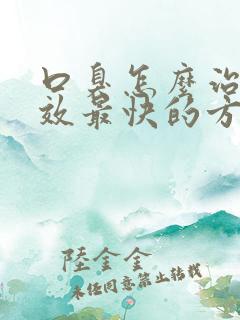 口臭怎麼治
效最快的方
陸金金
未經同意禁止轉載